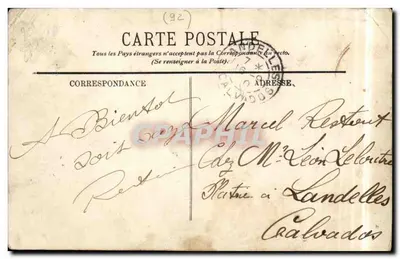 (92)
CARTE POSTALE
Tous les Pays étrangers n'acceptent pas la Correspondance au recto.
(Se renseigner à la Poste).
LANDELLES
CALVADOS
CORRESPONDANCE
ADRESSE
A Bientot
soit
Marcel Restout
Chez Mr Léon
à Landelles
Calvados
CPAPHIL